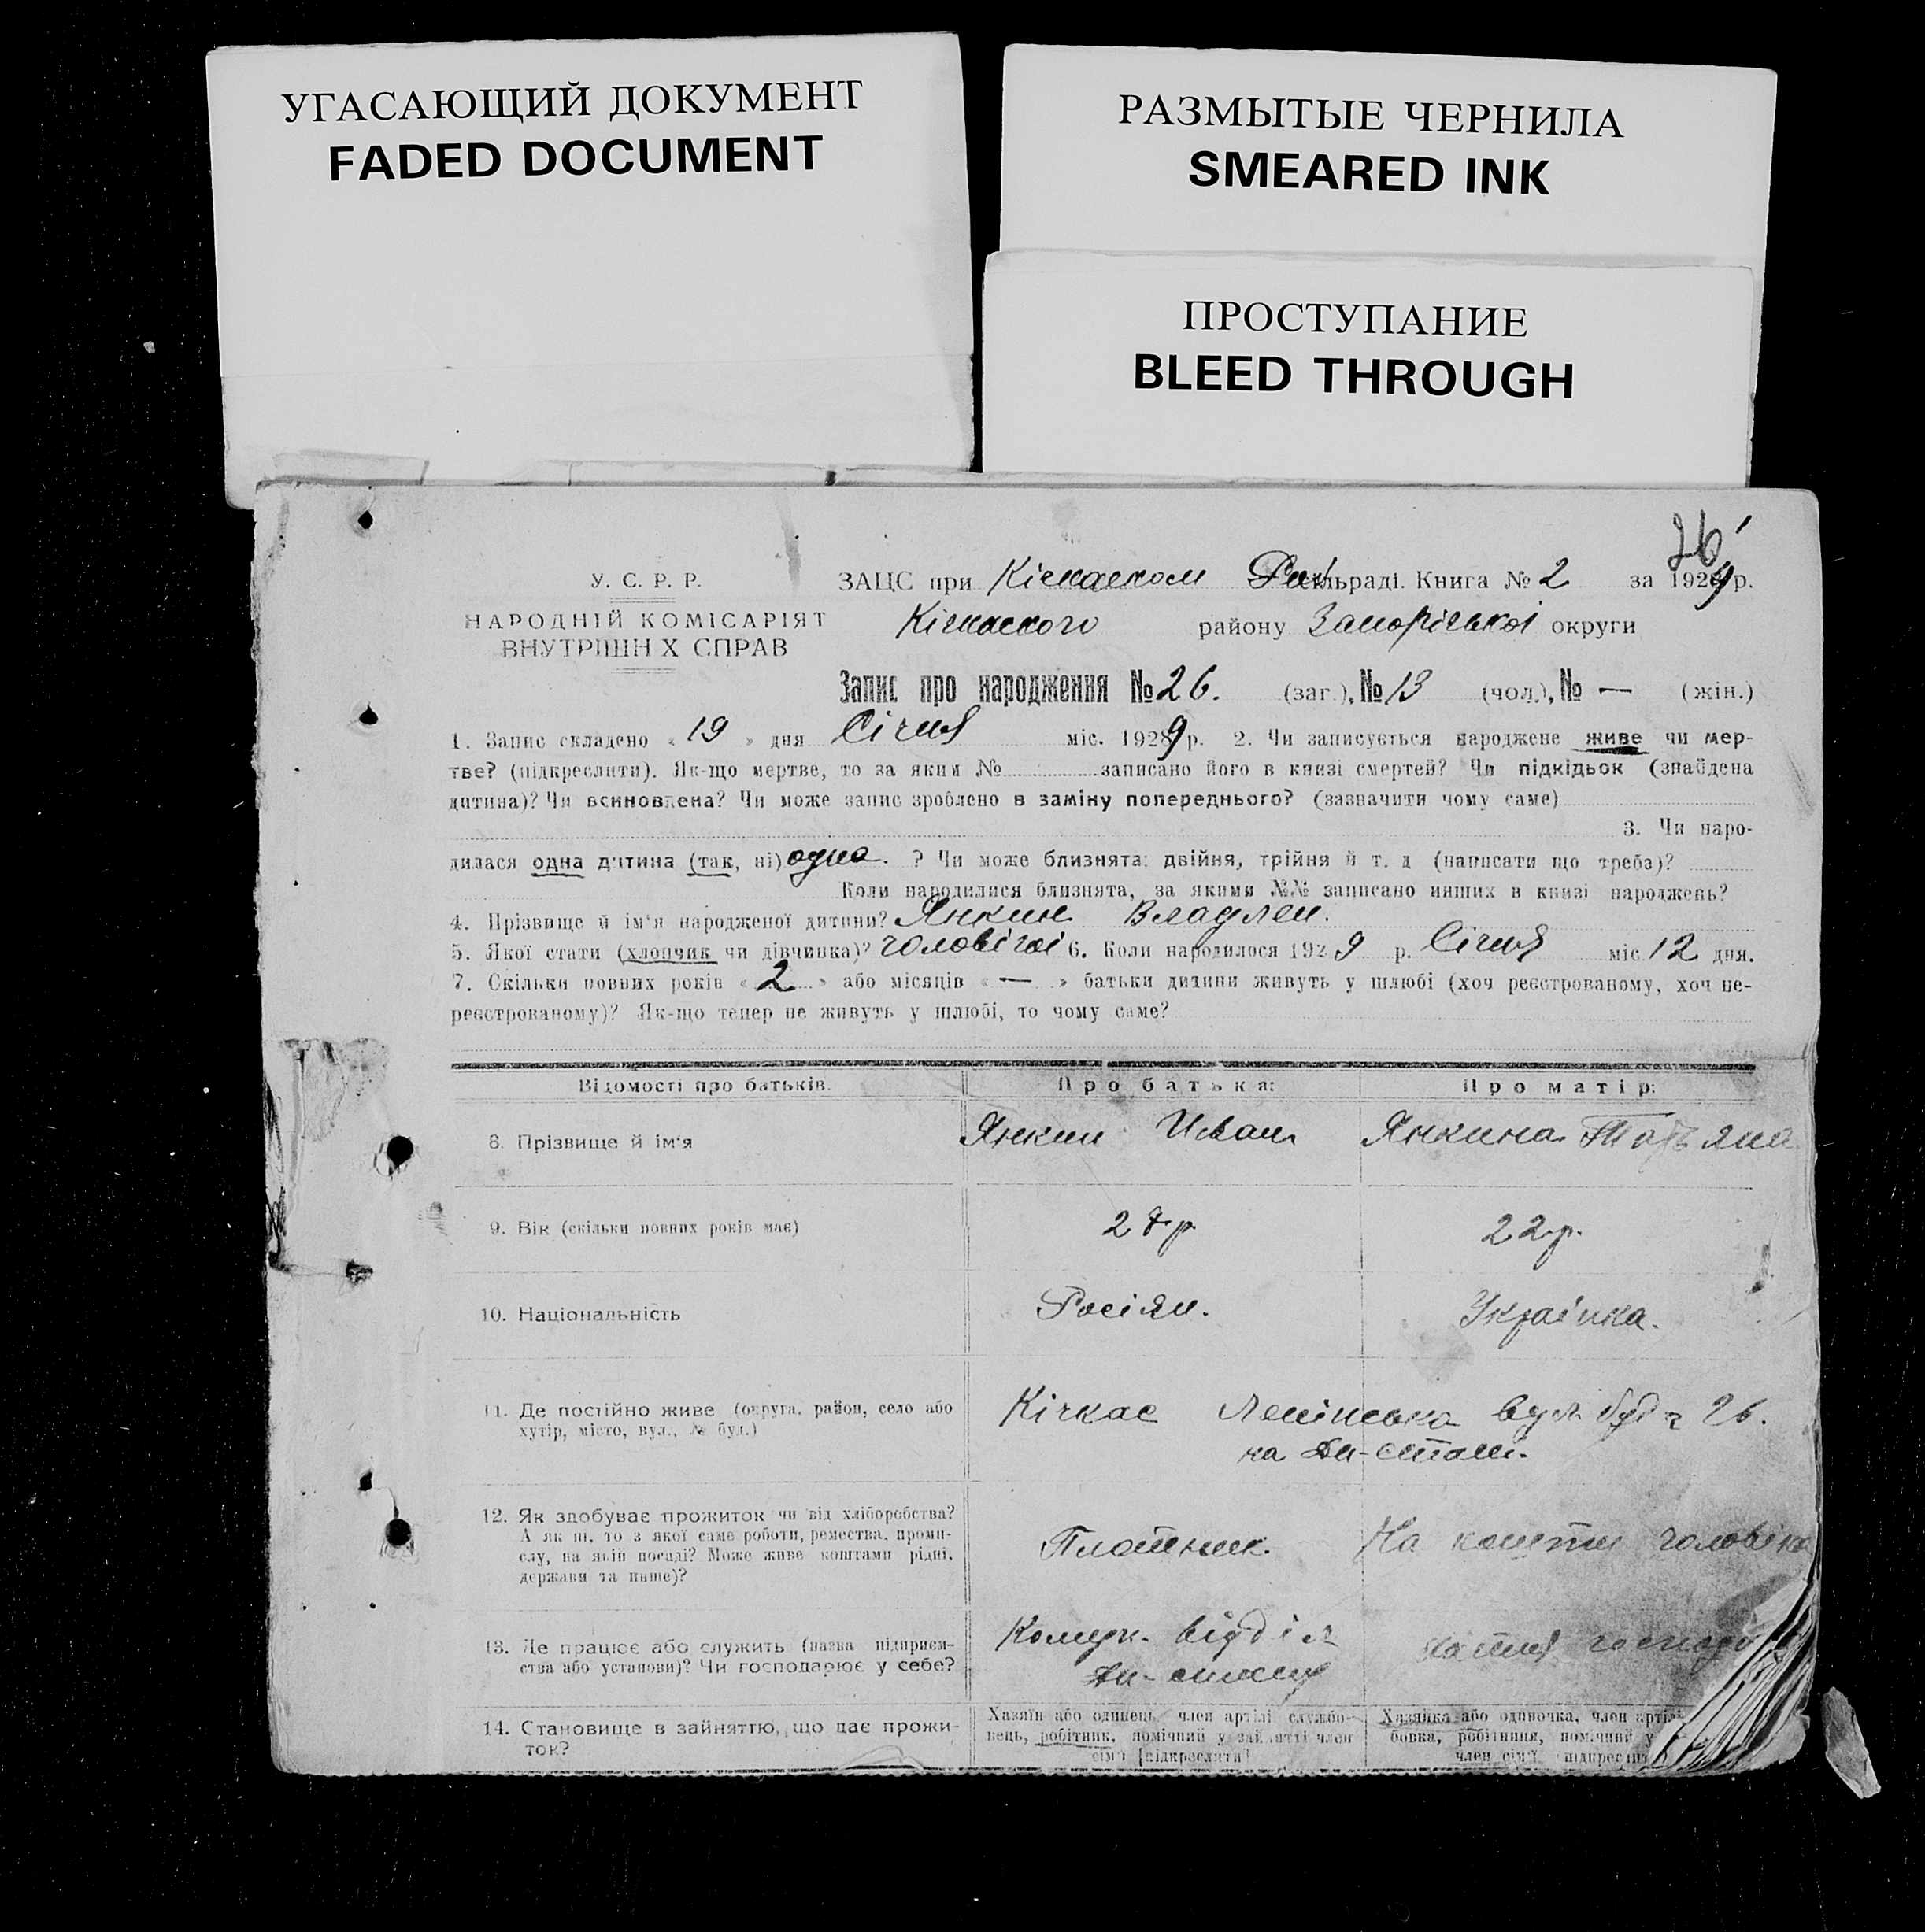 УГАСАЮЩИЙ ДОКУМЕНТ
FADED DOCUMENT
РАЗМЫТЫЕ ЧЕРНИЛА
SMEARED INK
ПРОСТУПАНИЕ
BLEED THROUGH
26
У. С. Р. Р.
НАРОДНІЙ КОМІСАРІЯТ
ВНУТРІШН Х СПРАВ
ЗАЦС при Кічкаском сільраді. Книга № 2 за 1929 р.
Кічкаского району Запоріської округи
Запис про народження № 26. (заг.), № 13 (чол.), № — (жін.)
1. Запис складено « 19 » дня Січня міс. 1929 р. 2. Чи записується народжене живе чи мер-
тве? (підкреслити). Як-що мертве, то за яким № записано його в книзі смертей? Чи підкідьок (знайдена
дитина)? Чи всиновлена? Чи може запис зроблено в заміну попереднього? (зазначити чому саме)
3. Чи наро-
дилася одна дитина (так, ні) одна. ? Чи може близнята: двійня, трійня й т. д (написати що треба)?
Коли народилися близнята, за якими №№ записано инших в книзі народжень?
4. Прізвище й ім'я народженої дитини? Янкин Владлен.
5. Якої стати (хлопчик чи дівчинка)? чоловічої 6. Коли народилося 1929 р. Січня міс. 12 дня.
7. Скільки повних років « 2 » або місяців « — » батьки дитини живуть у шлюбі (хоч реєстрованому, хоч не-
реєстрованому)? Як-що тепер не живуть у шлюбі, то чому саме?
Відомості про батьків.
Про батька:
Про матір:
8. Прізвище й ім'я
Янкин Иван
Янкина Татьяна
9. Вік (скільки повних років має)
27 р
22 р.
10. Національність
Росіян.
Українка.
11. Де постійно живе (округа, район, село або
хутір, місто, вул., № буд.)
Кічкас Ленінська вул. буд 26.
12. Як здобуває прожиток чи від хліборобства?
А як ні, то з якої саме роботи, ремества, проми-
слу, на якій посаді? Може живе коштами рідні,
держави та инше)?
Плотник.
На кошти чоловіка
13. Де працює або служить (назва підприєм-
ства або установи)? Чи господарює у себе?
Комун. відділ
14. Становище в зайняттю, що дає прожи-
ток?
Хазяїн або одинець, член артілі службо-
вець, робітник, помічний у зайнятті член
сім'ї [підкреслити]
Хазяйка або одиночка, член артілі
бовка, робітниця, помічний у
член сім'ї